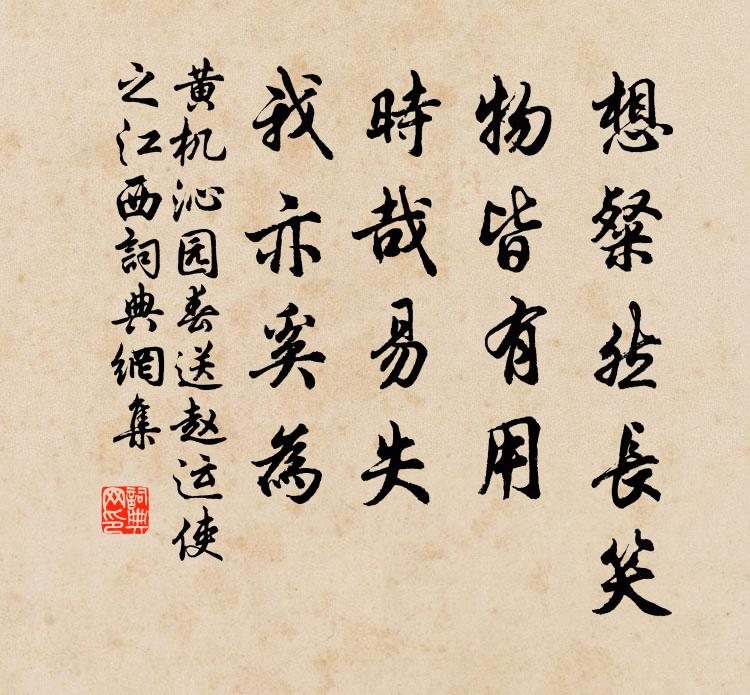 想粲然長笑
物皆有用
時哉易失
我亦奚為
黄机沁园春送赵运使
之江西詞典網集
詞典网印